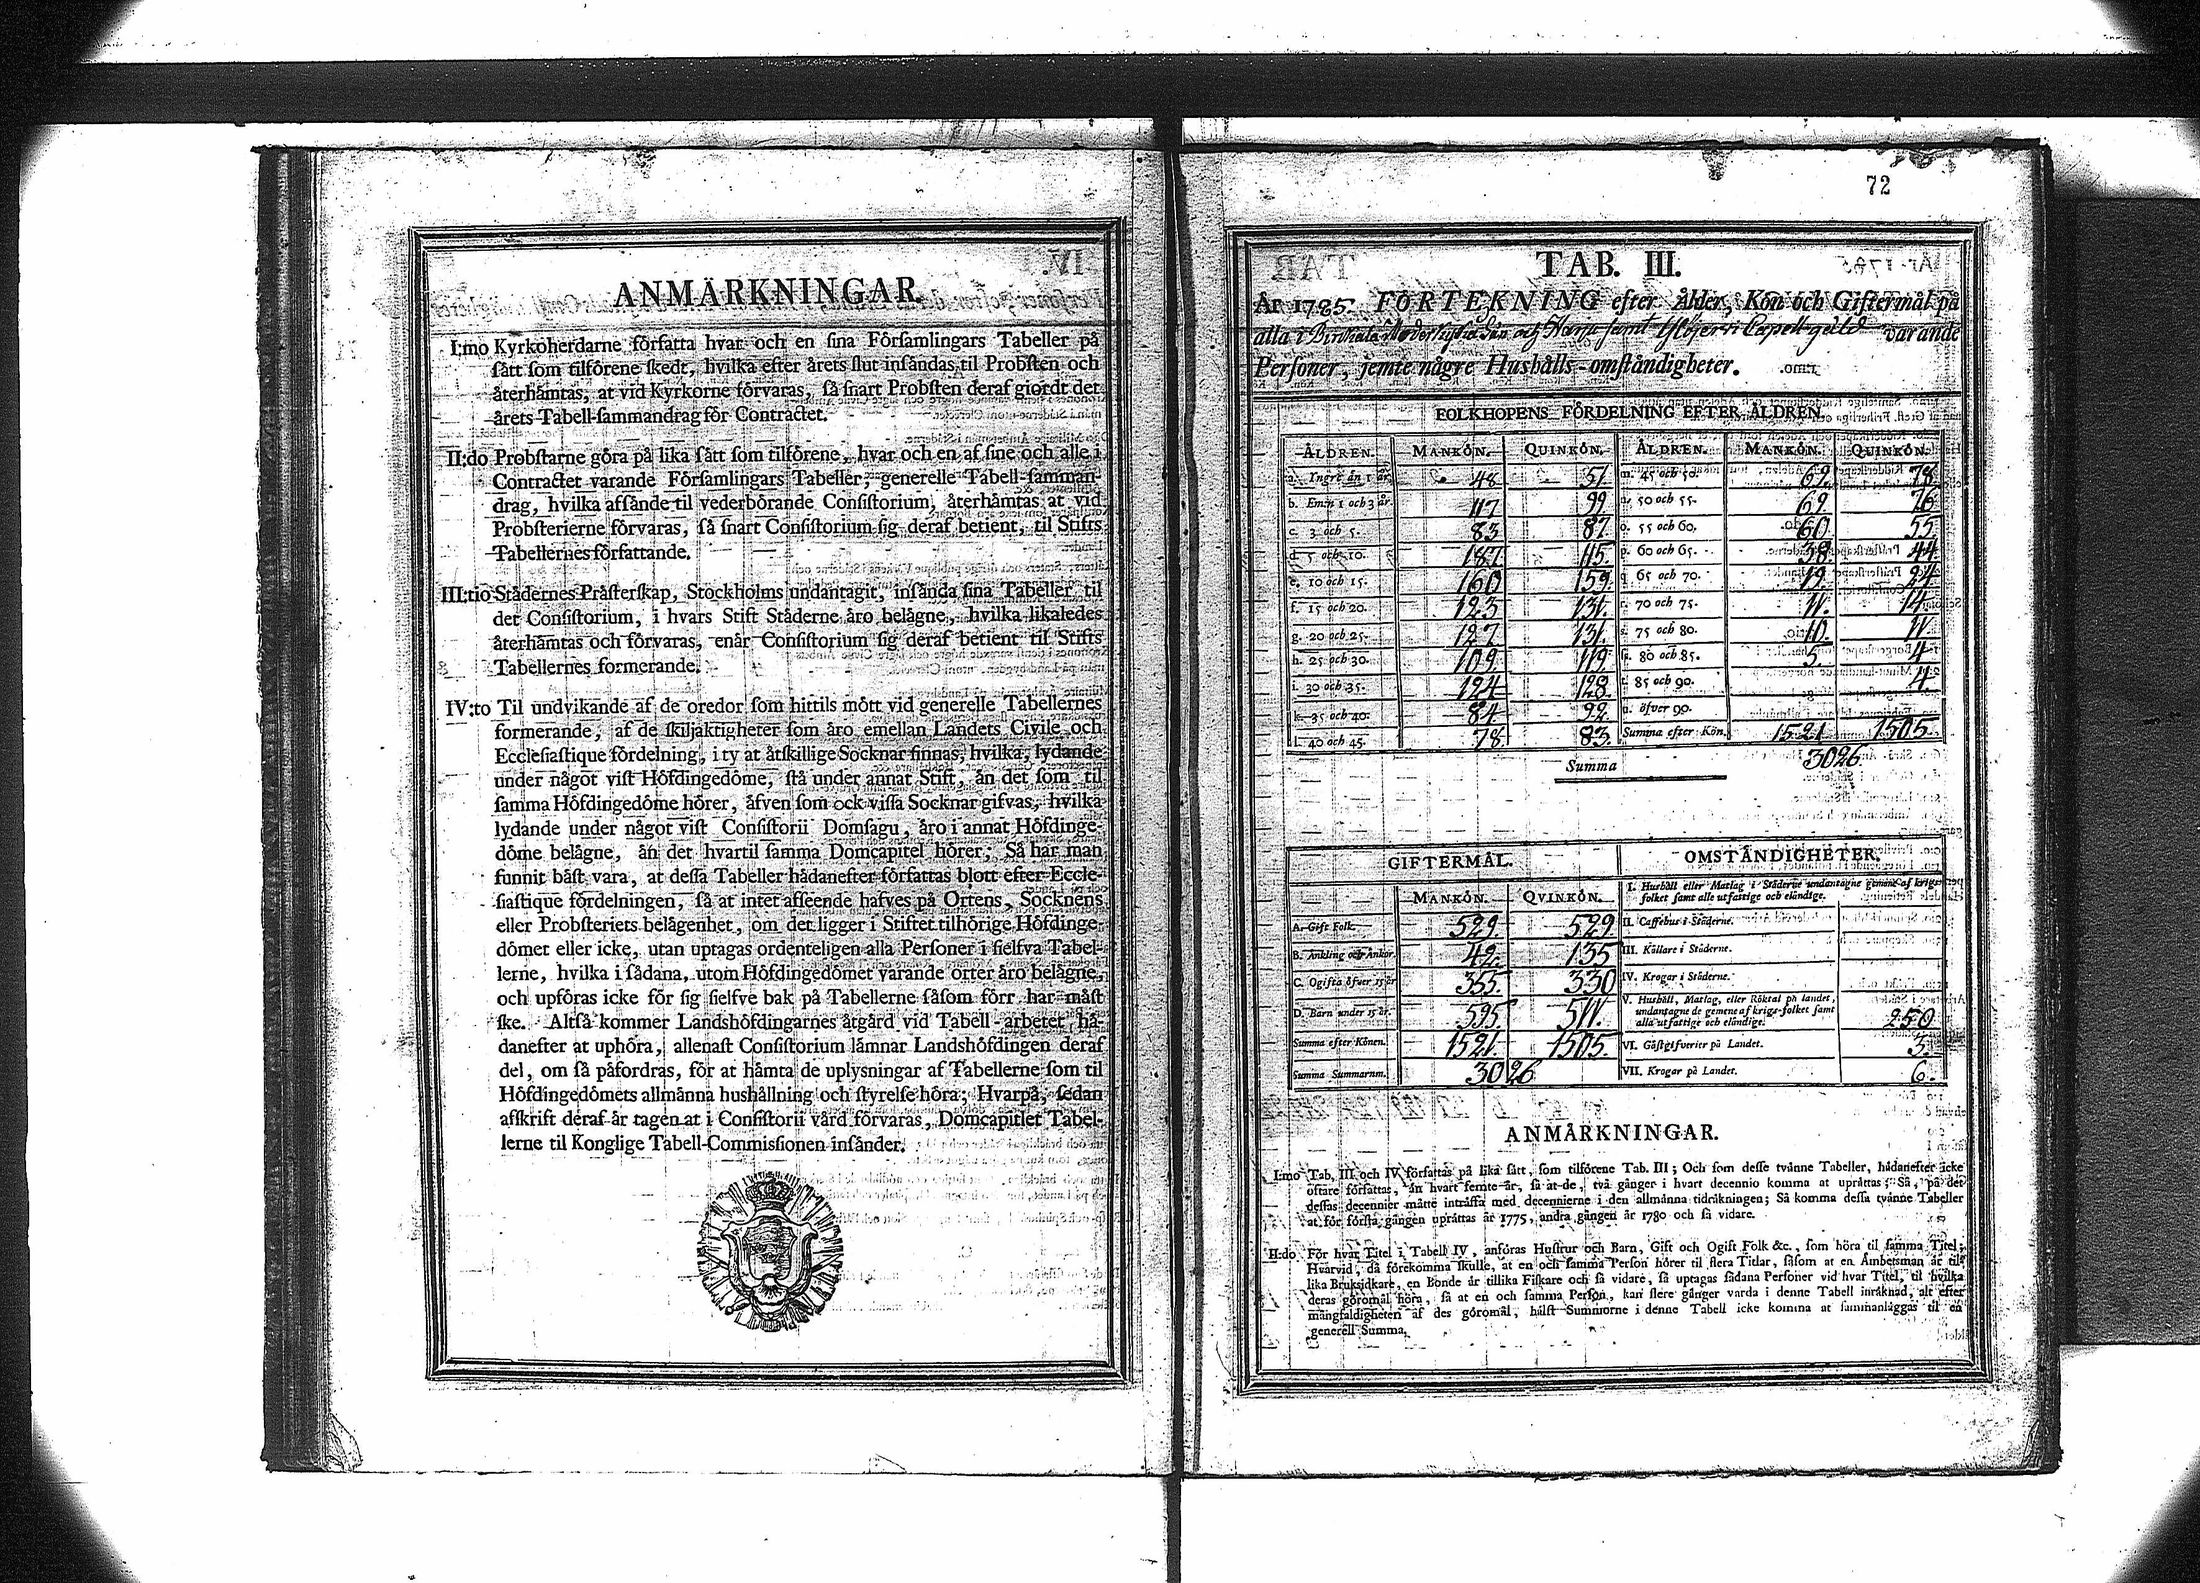 ANMÄRKNINGAR.
I:mo Kyrkoherdarne författa hvar och en sina Församlingars Tabeller på
sätt som tilförene skedt, hvilka efter årets slut insändas til Probsten och
återhämtas, at vid Kyrkorne förvaras, så snart Probsten deraf giordt det
årets Tabell-sammandrag för Contractet.
II:do Probstarne göra på lika sätt som tilförene, hvar och en af sine och alle i
Contractet varande Församlingars Tabeller, generelle Tabell-samman-
drag, hvilka afsände til vederbörande Consistorium, återhämtas at vid
Probsterierne förvaras, så snart Consistorium sig deraf betient, til Stifts
Tabellernes författande.
III:tio Städernes Prästerskap, Stockholms undantagit, insända sina Tabeller til
det Consistorium, i hvars Stift Städerne äro belägne, hvilka likaledes
återhämtas och förvaras, enär Consistorium sig deraf betient til Stifts
Tabellernes formerande.
IV:to Til undvikande af de oredor som hittils mött vid generelle Tabellernes
formerande, af de skiljaktigheter som äro emellan Landets Civile och
Ecclesiastique fördelning, i ty at åtskillige Socknar finnas, hvilka, lydande
under något vist Höfdingedöme, stå under annat Stift, än det som til
samma Höfdingedöme hörer, äfven som ock vissa Socknar gifvas, hvilka
lydande under något vist Consistorii Domsagu, äro i annat Höfdinge-
döme belägne, än det hvartil samma Domcapitel hörer; Så har man
funnit bäst vara, at dessa Tabeller hädanefter författas blott efter Eccle-
siastique fördelningen, så at intet afseende hafves på Ortens, Socknens
eller Probsteriets belägenhet, om det ligger i Stiftet tilhörige Höfdinge-
dömet eller icke, utan uptagas ordenteligen alla Personer i sielfva Tabel-
lerne, hvilka i sådana, utom Höfdingedömet varande orter äro belägne,
och upföras icke för sig sielfve bak på Tabellerne såsom förr har måst
ske. Altså kommer Landshöfdingarnes åtgärd vid Tabell-arbetet hä-
danefter at uphöra, allenast Consistorium lämnar Landshöfdingen deraf
del, om så påfordras, för at hämta de uplysningar af Tabellerne som til
Höfdingedömets allmänna hushållning och styrelse höra; Hvarpå, sedan
afskrift deraf är tagen at i Consistorii vård förvaras, Domcapitlet Tabel-
lerne til Konglige Tabell-Commissionen insänder.
72
TAB. III.
År 1785. FÖRTEKNING efter Ålder, Kön och Giftermål på
alla i Birckala Moderkyrka och Capell gäld varande
Personer, jemte någre Hushålls-omständigheter.
FOLKHOPENS FÖRDELNING EFTER ÅLDREN.
ÅLDREN. MANKÖN. QUINKÖN. ÅLDREN. MANKÖN. QUINKÖN.
a. Ingre än 1 år. 48 51. m. 45 och 50. 69. 78.
b. Emen 1 och 3 år. 117 99 n. 50 och 55. 69. 76.
c. 3 och 5. 83 87. o. 55 och 60. 60. 55.
d. 5 och 10. 187. 115. p. 60 och 65. 38. 44.
e. 10 och 15. 160 159. q. 65 och 70. 19. 24.
f. 15 och 20. 123 131. r. 70 och 75. 11. 14.
g. 20 och 25. 127 131. s. 75 och 80. 10. 11.
h. 25 och 30. 109. 119. 80 och 85. 5. 4.
i. 30 och 35. 124 128. t. 85 och 90. 4.
k. 35 och 40. 84. 92. u. öfver 90.
l. 40 och 45. 78. 83. Summa efter Kön. 1521. 1505.
Summa 3026
GIFTERMÅL. OMSTÄNDIGHETER.
MANKÖN. QVINKÖN. I. Hushåll eller Matlag i Städerne undantagne gemene af krigs-
folket samt alle utfattige och eländige.
A. Gift Folk. 529. 529 II. Caffehus i Städerne.
B. Änkling och Änkor. 42. 135 III. Källare i Städerne.
C. Ogifta öfver 15 år 355. 330 IV. Krogar i Städerne.
D. Barn under 15 år. 595 511. V. Hushåll, Matlag, eller Röktal på landet,
undantagne de gemene af krigs-folket samt
alla utfattige och eländige. 250
Summa efter Könen. 1521. 1505. VI. Gästgifverier på Landet. 3.
Summa Summarum. 3026 VII. Krogar på Landet. 6.
ANMÄRKNINGAR.
I:mo Tab. III och IV författas på lika sätt, som tilförene Tab. III; Och som desse tvänne Tabeller, hädanefter icke
oftare författas, än hvart femte år, så at de, två gånger i hvart decennio komma at uprättas; Så, på det
dessas decennier måtte inträffa med decennierne i den allmänna tidräkningen; Så komma dessa tvänne Tabeller
at för första gången uprättas år 1775, andra gången år 1780 och så vidare.
II:do För hvar Titel i Tabell IV, anföras Hustrur och Barn, Gift och Ogift Folk &c., som höra til samma Titel;
Hvarvid, då förekomma skulle, at en och samma Person hörer til flera Titlar, såsom at en Ämbetsman är til-
lika Bruksidkare, en Bonde är tillika Fiskare och så vidare, så uptagas sådana Personer vid hvar Titel, til hvilka
deras göromål höra, så at en och samma Person, kan flere gånger varda i denne Tabell inräknad, alt efter
mångfaldigheten af des göromål, hälst Summorne i denne Tabell icke komma at summanläggas til en
generell Summa.